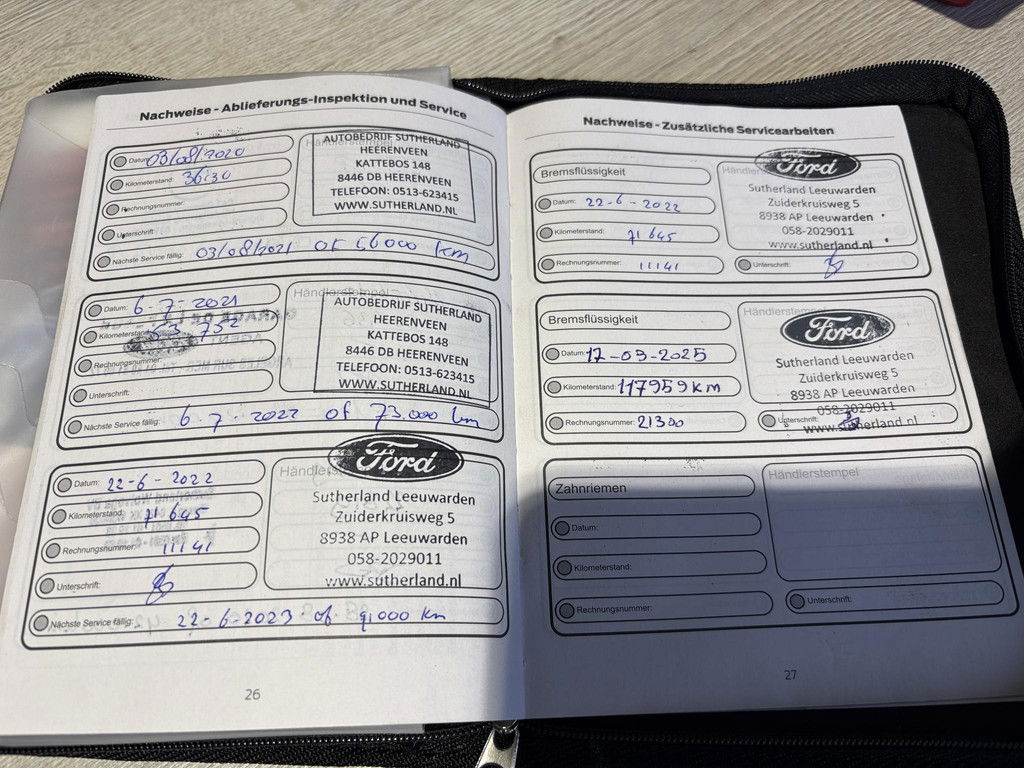 Nachweise - Ablieferungs-Inspektion und Service
Datum: 03/08/2020
Kilometerstand: 36130
Rechnungsnummer:
Unterschrift:
Nächste Service fällig: 03/08/2021 of 56000 km
AUTOBEDRIJF SUTHERLAND
HEERENVEEN
KATTEBOS 148
8446 DB HEERENVEEN
TELEFOON: 0513-623415
WWW.SUTHERLAND.NL
Datum: 6-7-2021
Kilometerstand: 53 752
Rechnungsnummer:
Unterschrift:
Nächste Service fällig: 6-7-2022 of 73.000 km
Händlerstempel
AUTOBEDRIJF SUTHERLAND
HEERENVEEN
KATTEBOS 148
8446 DB HEERENVEEN
TELEFOON: 0513-623415
WWW.SUTHERLAND.NL
Datum: 22-6-2022
Kilometerstand: 71 645
Rechnungsnummer: 11141
Unterschrift:
Nächste Service fällig: 22-6-2023 of 91000 km
Ford
Sutherland Leeuwarden
Zuiderkruisweg 5
8938 AP Leeuwarden
058-2029011
www.sutherland.nl
26
Nachweise - Zusätzliche Servicearbeiten
Bremsflüssigkeit
Datum: 22-6-2022
Kilometerstand: 71 645
Rechnungsnummer: 11141
Unterschrift:
Ford
Sutherland Leeuwarden
Zuiderkruisweg 5
8938 AP Leeuwarden
058-2029011
www.sutherland.nl
Bremsflüssigkeit
Datum: 17-03-2025
Kilometerstand: 117959 KM
Rechnungsnummer: 21300
Unterschrift:
Ford
Sutherland Leeuwarden
Zuiderkruisweg 5
8938 AP Leeuwarden
058-2029011
www.sutherland.nl
Zahnriemen
Datum:
Kilometerstand:
Rechnungsnummer:
Händlerstempel
Unterschrift:
27